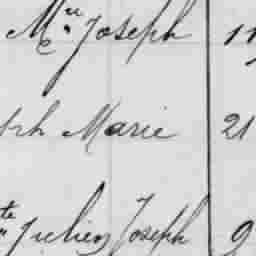 Mie Joseph 11
ph Marie 21
te Julien Joseph 9